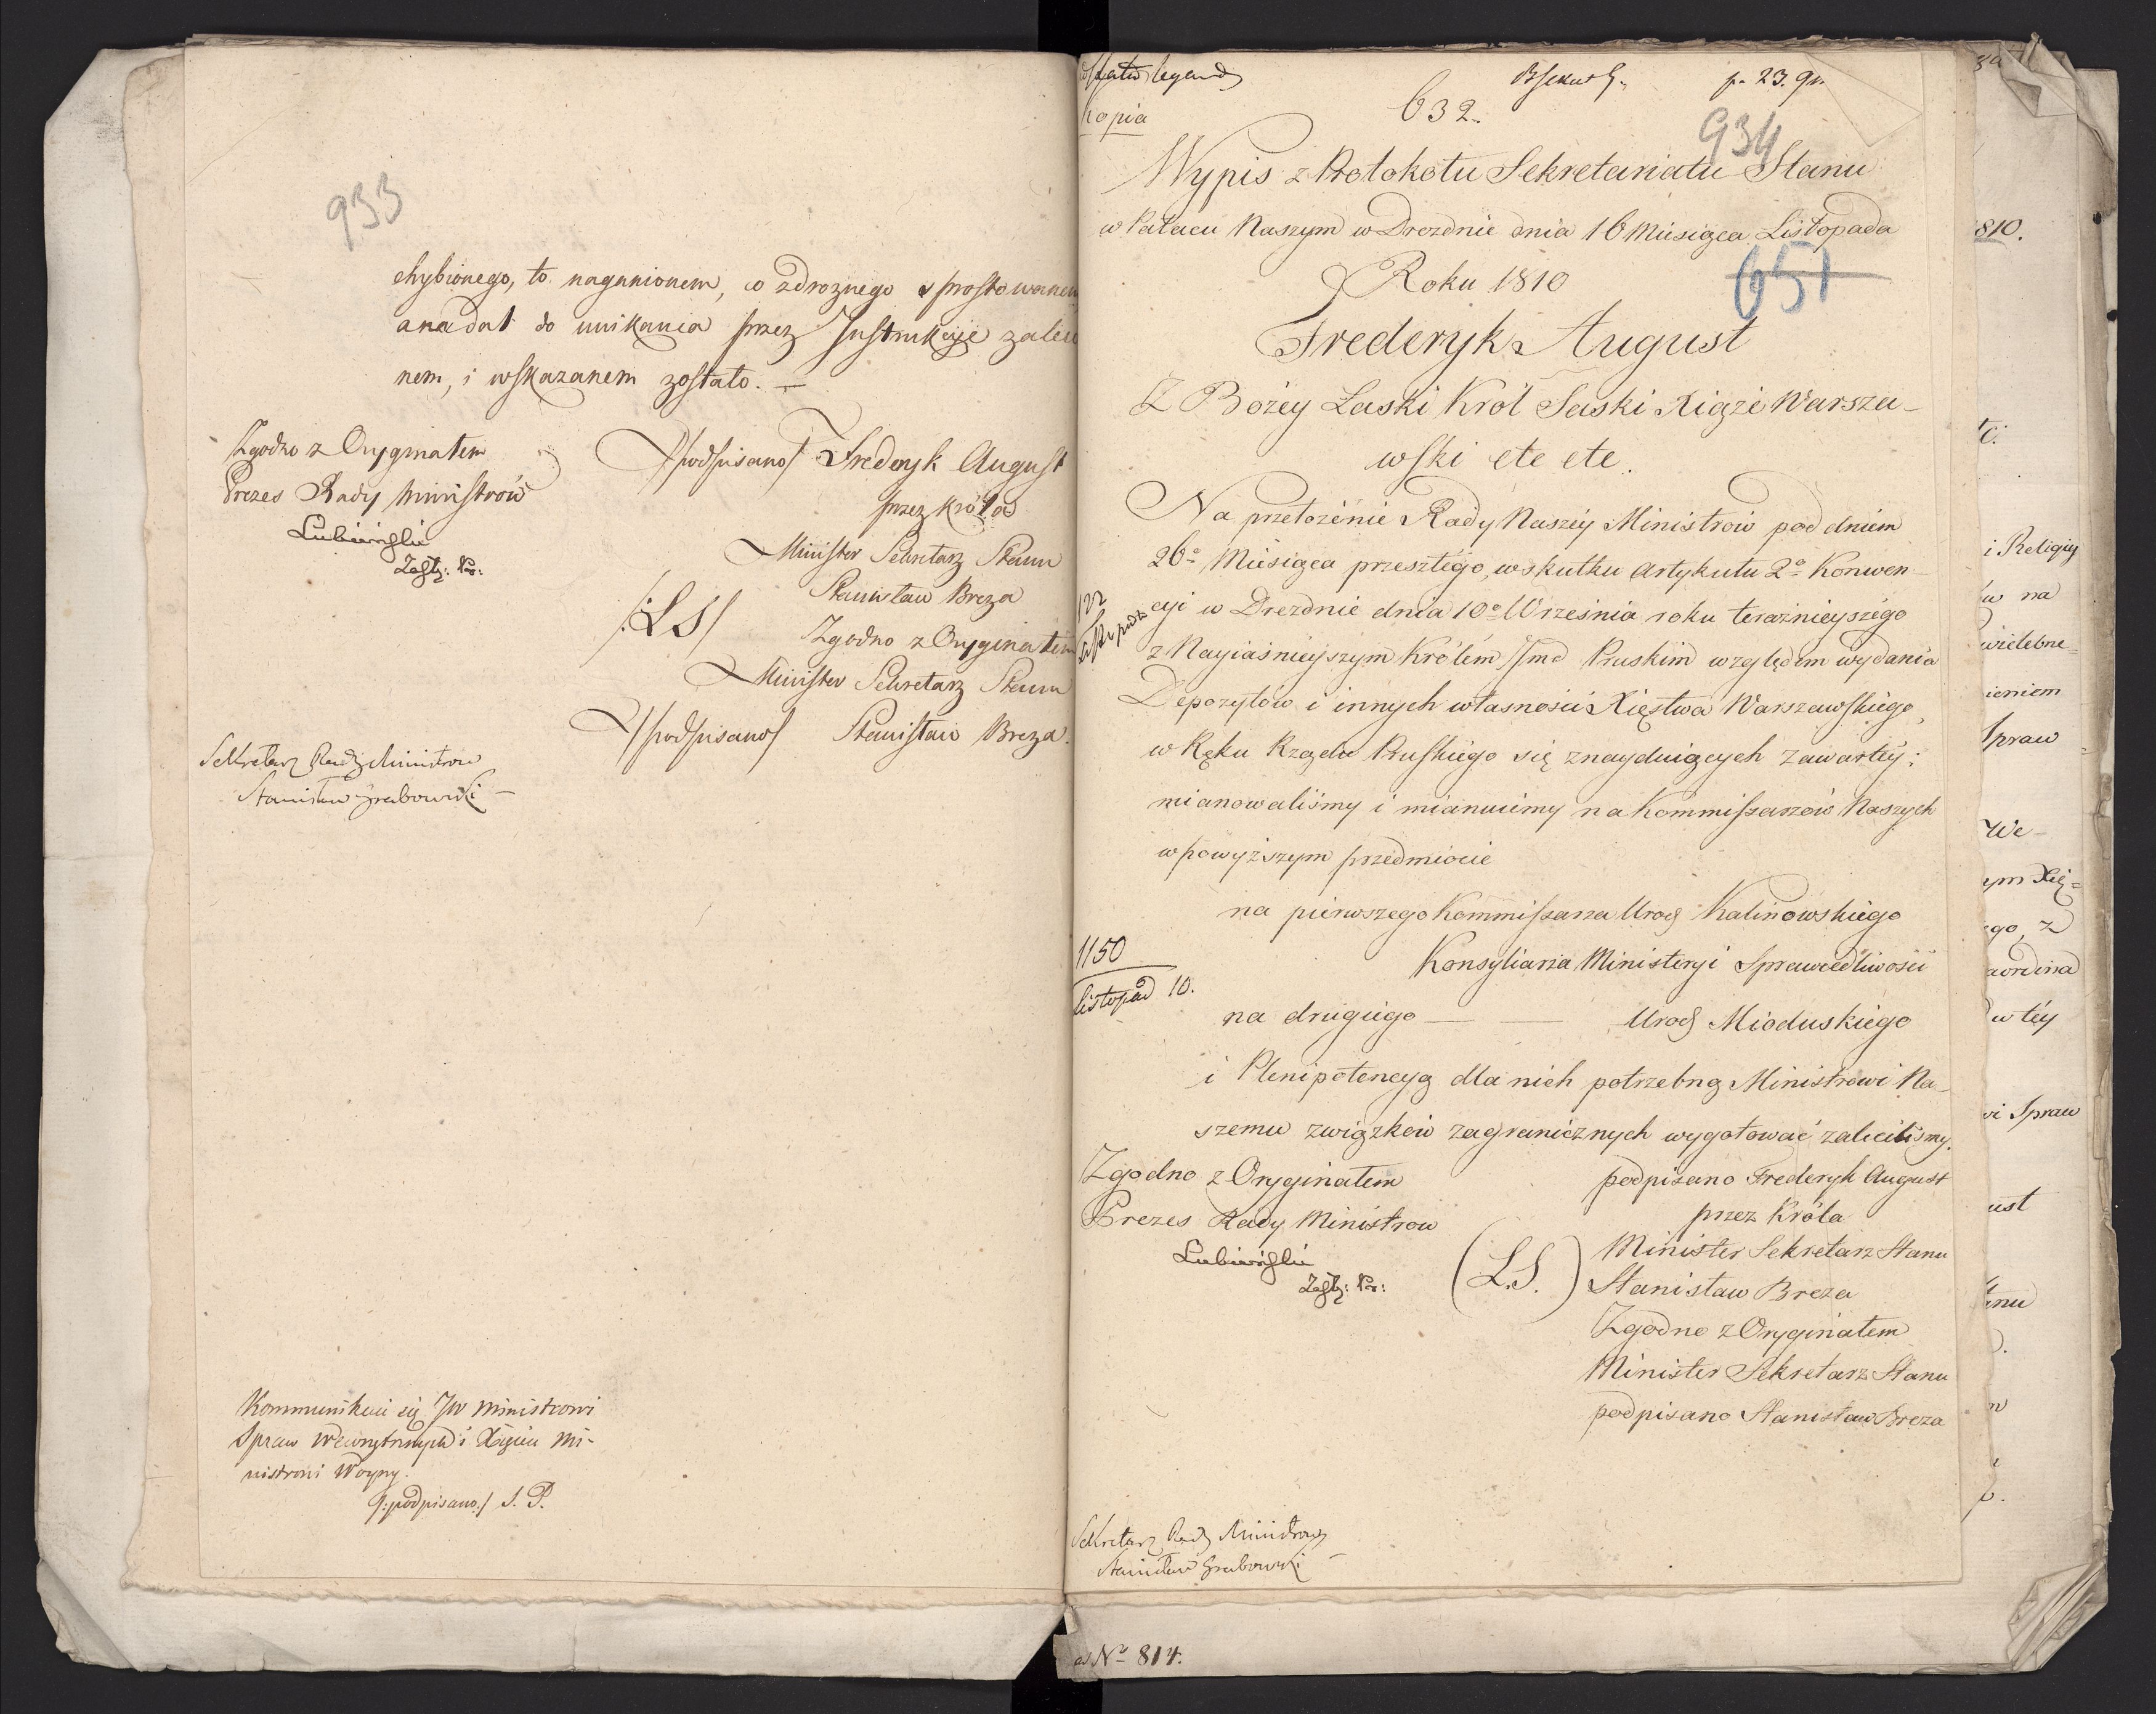 933
chybionego, to naganionem, co zdrożnego sprostowanem
anadal do unikania przez Instrukcyje zalec
nem, i wskazanem zostało. —
Zgodno z Oryginałem
Prezes Rady Ministrów
Lubieński
Zastę: Pr:
/podpisano/ Frederyk August
przez Króla
Minister Sekretarz Stanu
Stanisław Breza
/:LS/ Zgodno z Oryginałem
Minister Sekretarz Stanu
/podpisano/ Stanisław Breza.
Sekretarz Rady Ministrow
Stanisław Grabowski —
Kommunikuie się JW Ministrowi
Spraw Wewnętrznych i Xięciu Mi-
nistrowi Woyny.
/:podpisano:/ S. P.
p. 23. 9br.
Kopia
632.
934
Wypis z Protokołu Sekretariatu Stanu
w Pałacu Naszym w Dreznie dnia 16 Miesiąca Listopada
Roku 1810
651
Frederyk August
Z Bożey Łaski Król Saski Xiąże Warsza-
wski etc etc.
Na przełożenie Rady Naszey Ministrów pod dniem
26o Miesiąca przeszłego, wskutku Artykułu 2o Konwen-
cyi w Dreznie dnia 10o Września roku teraźnieyszego
z Nayiaśnieyszym Królem Jmć Pruskim względem wydania
Depozytów i innych własności Xięstwa Warszawskiego,
w Ręku Rządu Pruskiego się znayduiących zawartey;
mianowaliśmy i mianuiemy na Kommissarzów Naszych
w powyższym przedmiocie
na pierwszego Kommissarza Urod Kalinowskiego
Konsyliarza Ministeryi Sprawiedliwości
1150
listopad 10.
na drugiego — — Urod Mioduskiego
i Plenipotencyą dla nich potrzebną Ministrowi Na-
szemu związków zagranicznych wygotować zaleciliśmy.
Zgodno z Oryginałem
Prezes Rady Ministrow
Lubieński
Zastę: Pr:
podpisano Frederyk August
przez Króla
Minister Sekretarz Stanu
(L.S.) Stanisław Breza
Zgodno z Oryginałem
Minister Sekretarz Stanu
podpisano Stanisław Breza
Sekretarz Rady Ministrow
Stanisław Grabowski —
No 814.
810.
i Religiy
na
wielebne
ieniem
Spraw
We-
ym Xię-
go, z
w téy
wi Spraw
ust
anu